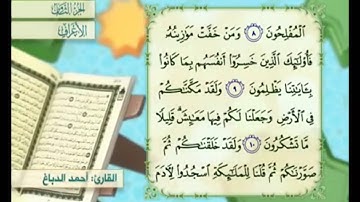 الجزء الثامن
الأعراف
الْمُفْلِحُونَ ٨ وَمَنْ خَفَّتْ مَوَٰزِينُهُۥ
فَأُو۟لَٰٓئِكَ الَّذِينَ خَسِرُوٓا۟ أَنفُسَهُم بِمَا كَانُوا۟
بِـَٔايَٰتِنَا يَظْلِمُونَ ٩ وَلَقَدْ مَكَّنَّٰكُمْ
فِى الْأَرْضِ وَجَعَلْنَا لَكُمْ فِيهَا مَعَٰيِشَ ۗ قَلِيلًا
مَّا تَشْكُرُونَ ١٠ وَلَقَدْ خَلَقْنَٰكُمْ ثُمَّ
صَوَّرْنَٰكُمْ ثُمَّ قُلْنَا لِلْمَلَٰٓئِكَةِ اسْجُدُوا۟ لِـَٔادَمَ
القارئ: أحمد الدباغ